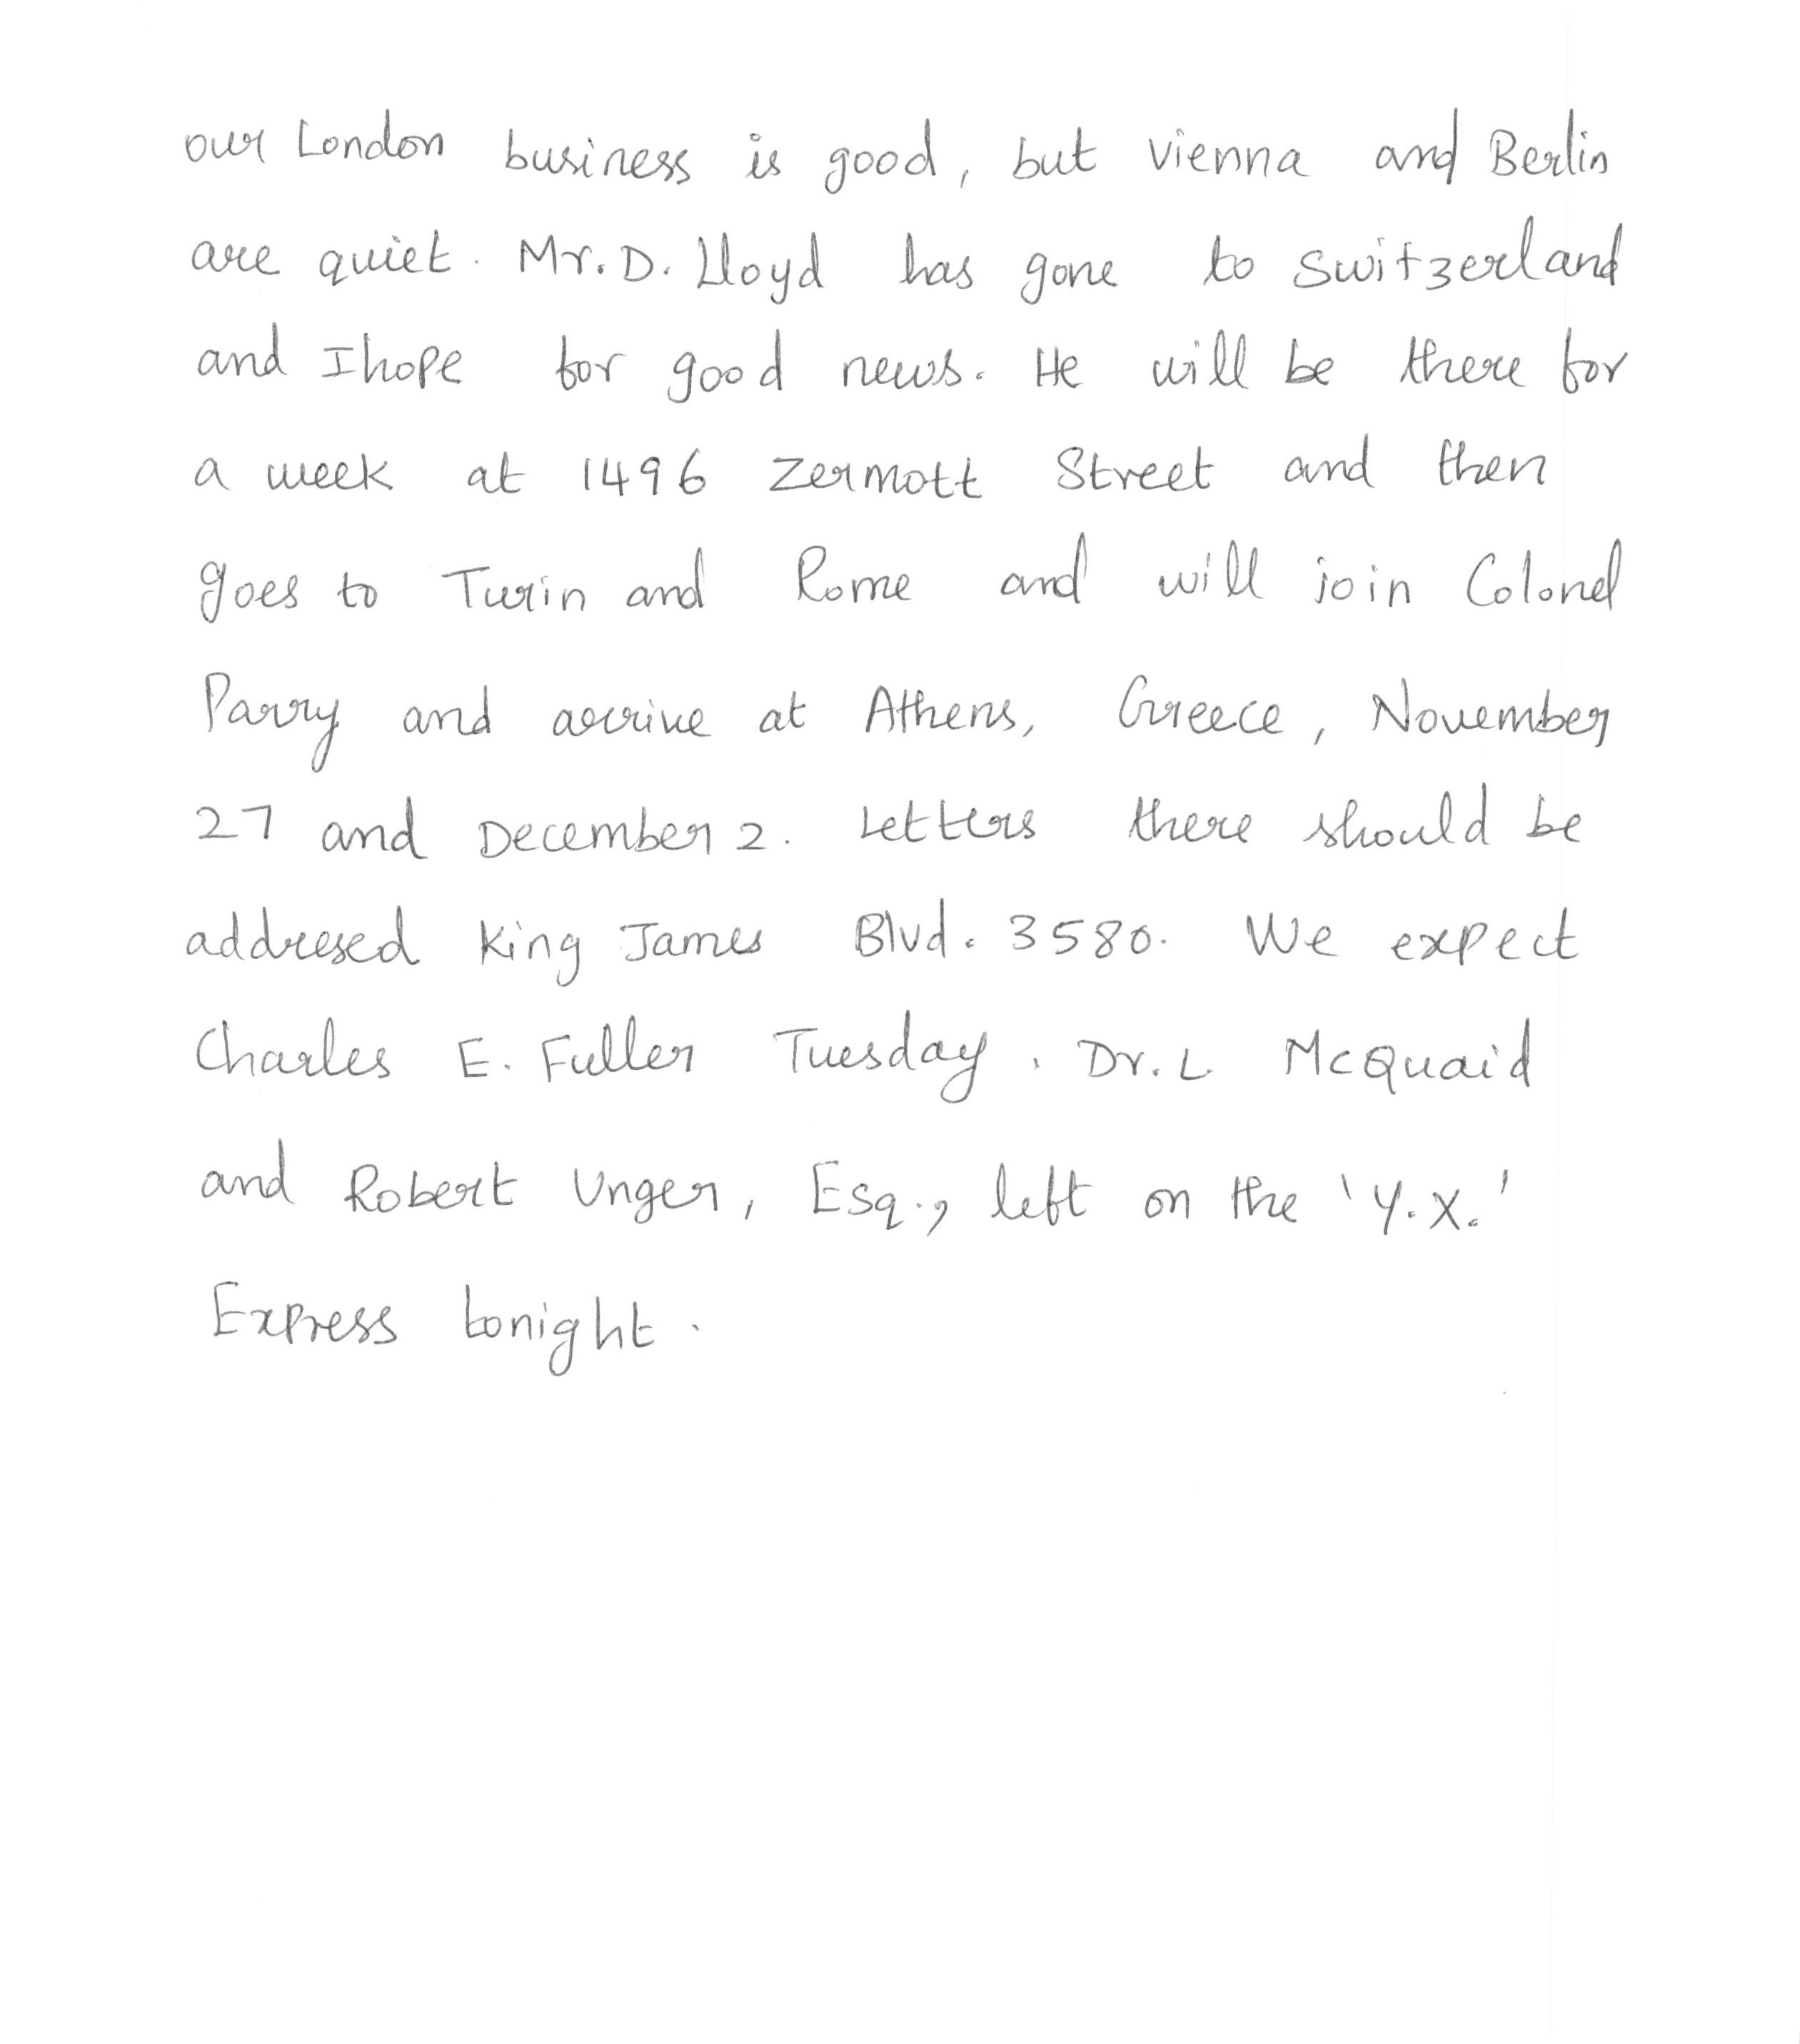 our London business is good, but Vienna and Berlin
are quiet. Mr. D. Lloyd has gone to Switzerland
and I hope for good news. He will be there for
a week at 1496 Zermott Street and then
goes to Turin and Rome and will join Colonel
Parry and arrive at Athens, Greece, November
27 and December 2. Letters there should be
addresed King James Blvd. 3580. We expect
Charles E. Fuller Tuesday. Dr. L. McQuaid
and Robert Unger, Esq., left on the 'Y.X.'
Express tonight.